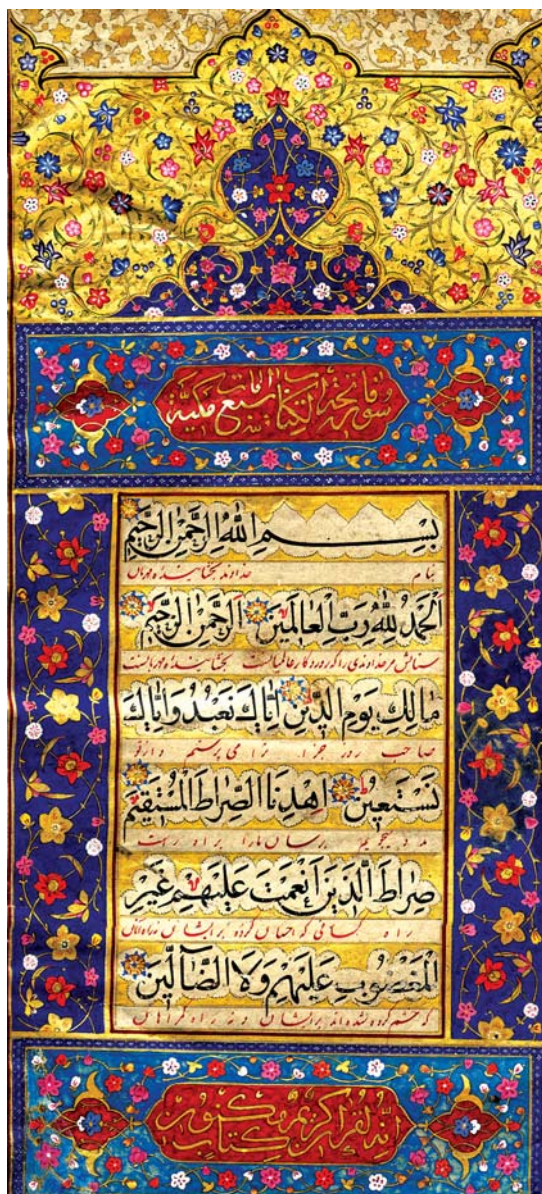 سورة فاتحة الكتاب سبع مكية
بِسْمِ اللهِ الرَّحْمٰنِ الرَّحِيمِ
بنام خداوند بخشاینده مهربان
اَلْحَمْدُ لِلّٰهِ رَبِّ الْعَالَمِينَ اَلرَّحْمٰنِ الرَّحِيمِ
ستایش مر خداوندی را که پروردگار عالمیانست بخشاینده مهربانست
مَالِكِ يَوْمِ الدِّينِ اِيَّاكَ نَعْبُدُ وَاِيَّاكَ
صاحب روز جزا ترا می پرستیم و از تو
نَسْتَعِينُ اِهْدِنَا الصِّرَاطَ الْمُسْتَقِيمَ
مدد میجوییم برسان مارا براه راست
صِرَاطَ الَّذِينَ اَنْعَمْتَ عَلَيْهِمْ غَيْرِ
راه کسانی که احسان کرده برایشان نه راه آنان
الْمَغْضُوبِ عَلَيْهِمْ وَلَا الضَّآلِّينَ
که خشم کرده شده اند برایشان و نه راه گمراهان
انه لقرآن كريم في كتاب مكنون